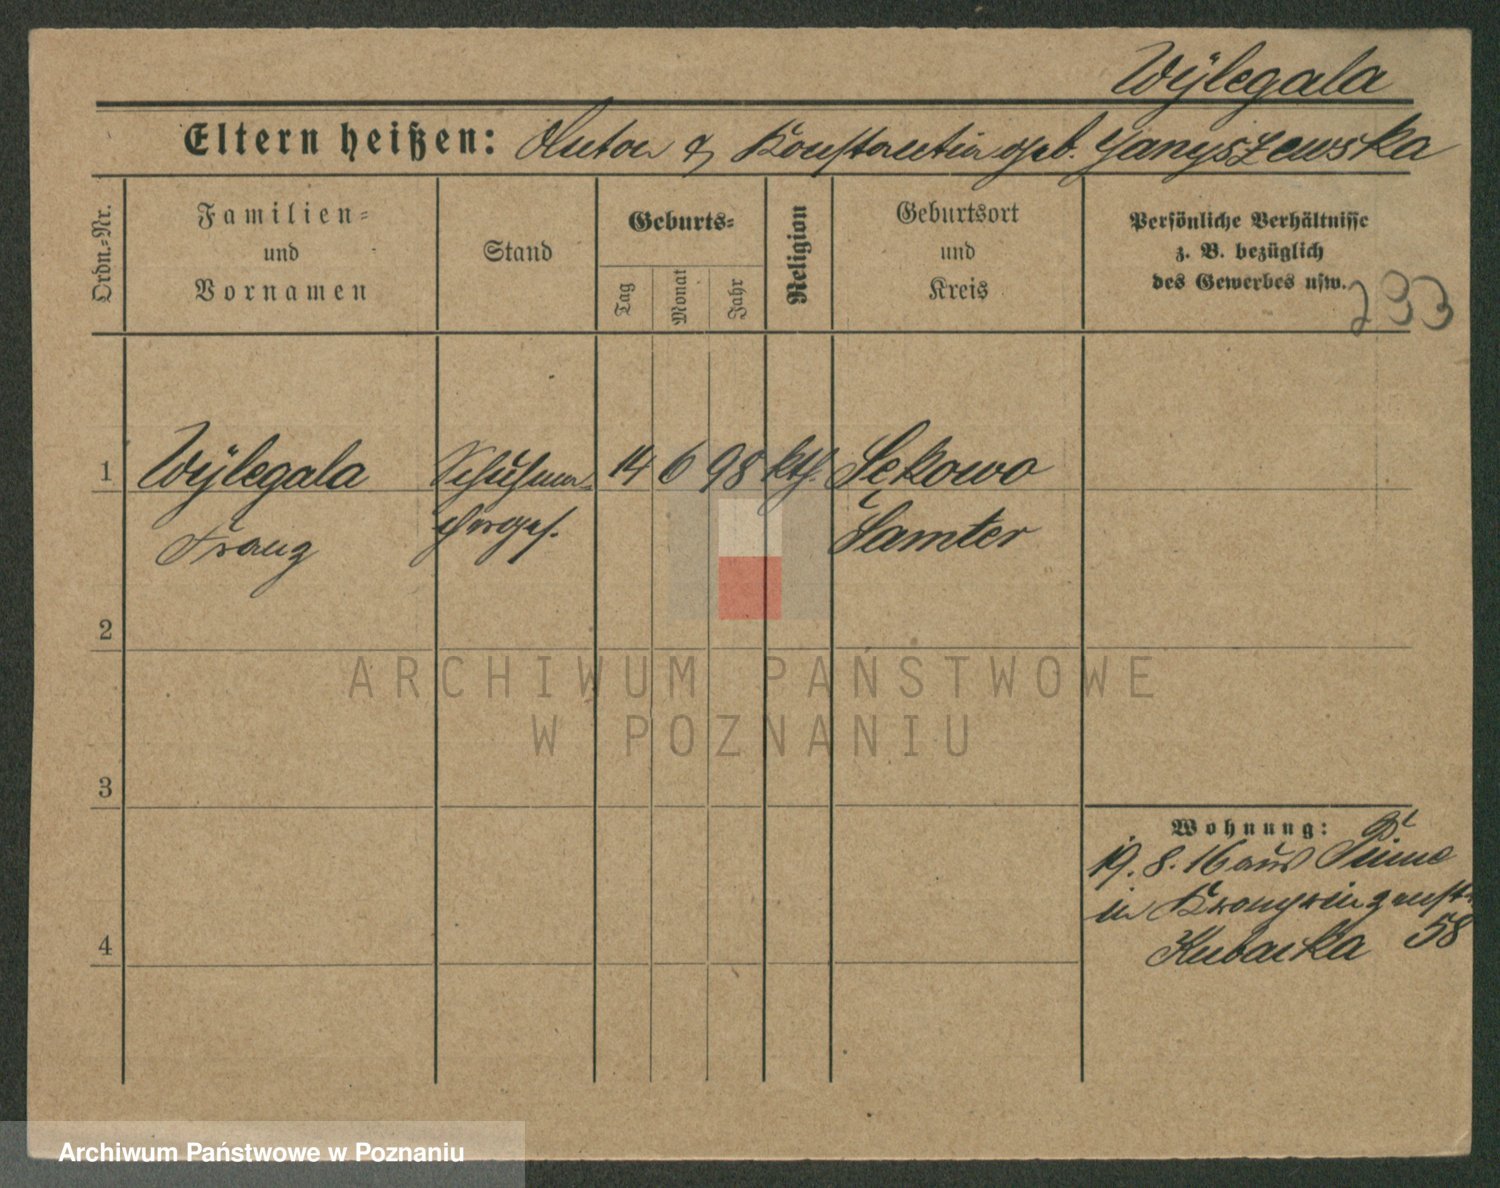 Wÿlegala
Eltern heißen: Anton & Konstantin geb. Janyszewska
Ordn.=Nr.
Familien=
und
Vornamen
Stand
Geburts=
Tag
Monat
Jahr
Religion
Geburtsort
und
Kreis
Persönliche Verhältnisse
z. B. bezüglich
des Gewerbes usw.
233
1 Wÿlegala Schuhma= 14 6 98 kth. Sekowo
Franz chergs. Samter
2
3
4
Wohnung:
19. 8. 16 aus Pinne
in Kronprinzenstr.
Kubacka 58
ARCHIWUM PAŃSTWOWE
W POZNANIU
Archiwum Państwowe w Poznaniu